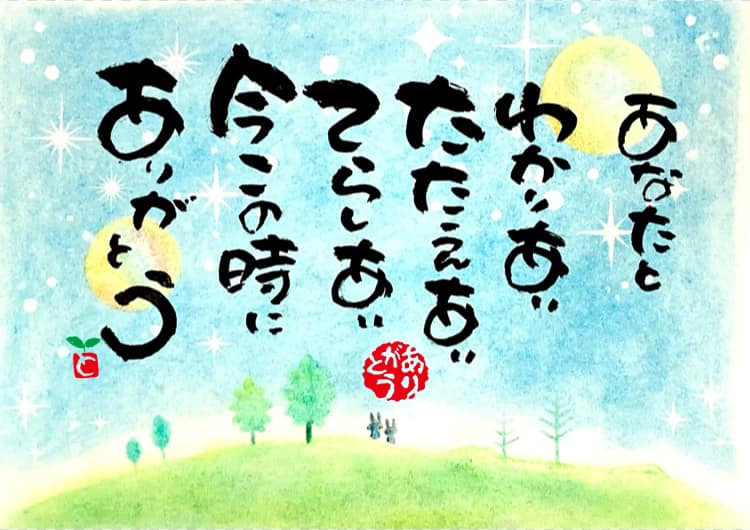 あなたと
わかりあい
たたえあい
てらしあい
今この時に
ありがとう
ありがとう
と